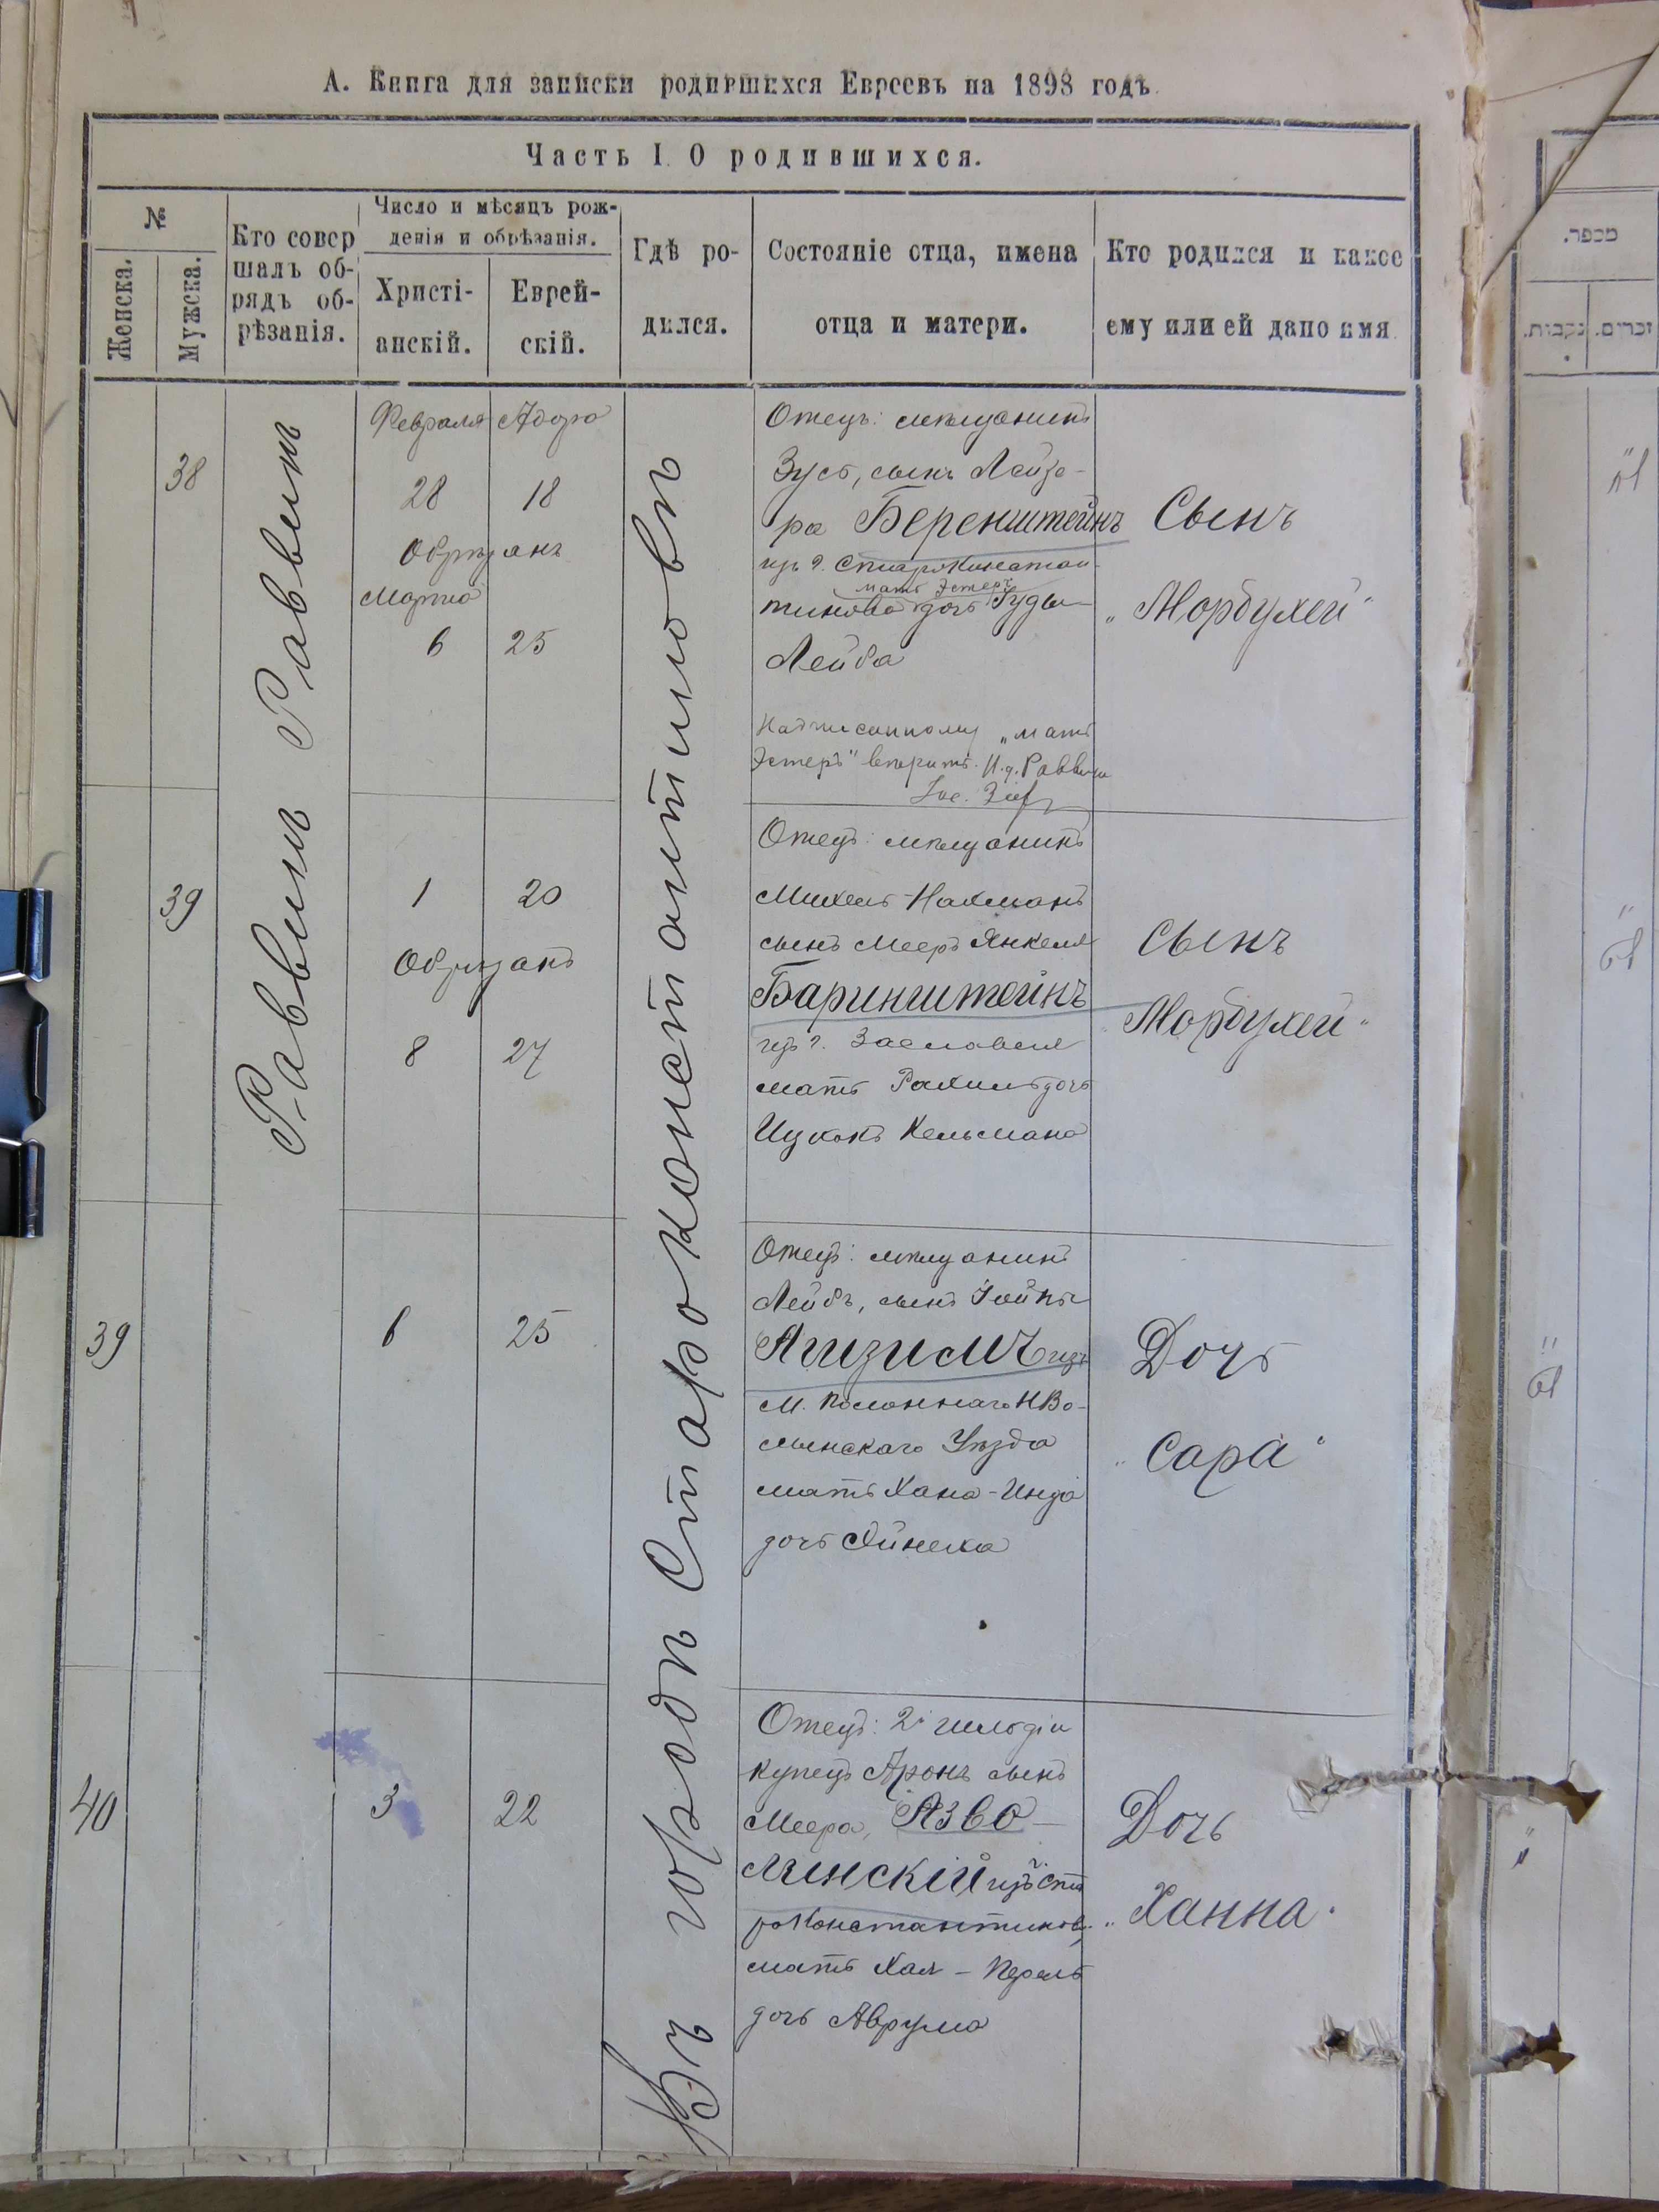 А. Книга для записки родившихся Евреевъ на 1898 годъ
Часть I. О родившихся.
№
Женска.
Мужска.
Кто совер
шалъ об-
рядъ об-
рѣзанія.
Число и мѣсяцъ рож-
денія и обрѣзанія.
Христі-
анскій.
Еврей-
скій.
Гдѣ ро-
дился.
Состояніе отца, имена
отца и матери.
Кто родился и какое
ему или ей дано имя.
Раввинъ Раввинъ
Въ городѣ Староконстантиновѣ
38
Февраля Адара
28 18
Обрѣзанъ
Марта
6 25
Отецъ: мѣщанинъ
Зусь, сынъ Лейзе-
ра Беренштейнъ
изъ г. Староконстан-
мать Эстеръ
тинова дочь Іуды
Лейба
Надписанному „мать
Эстеръ" вѣрить. И. д. Раввина
Сынъ
„Мордухей"
39
1 20
Обрѣзанъ
8 27
Отецъ: мѣщанинъ
Михель-Нахманъ
сынъ Мееръ Янкеля
Баринштейнъ
изъ г. Заславля
мать Рахиль дочь
Ицкокъ Кельмана
Сынъ
„Мордухей"
39
6 25
Отецъ: мѣщанинъ
Лейбъ, сынъ
изъ
м. Полоннаго НВо-
лынскаго Уѣзда
мать Хана-Инда
дочь
Дочь
„Сара"
40
3 22
Отецъ: 2й гильдіи
купецъ Аронъ сынъ
Меера, Азво-
линскій изъ г. Ста
роконстантинов.
мать Хая-Перель
дочь Аврума
Дочь
„Ханна"
מספר.
נקבות.
זכרים.